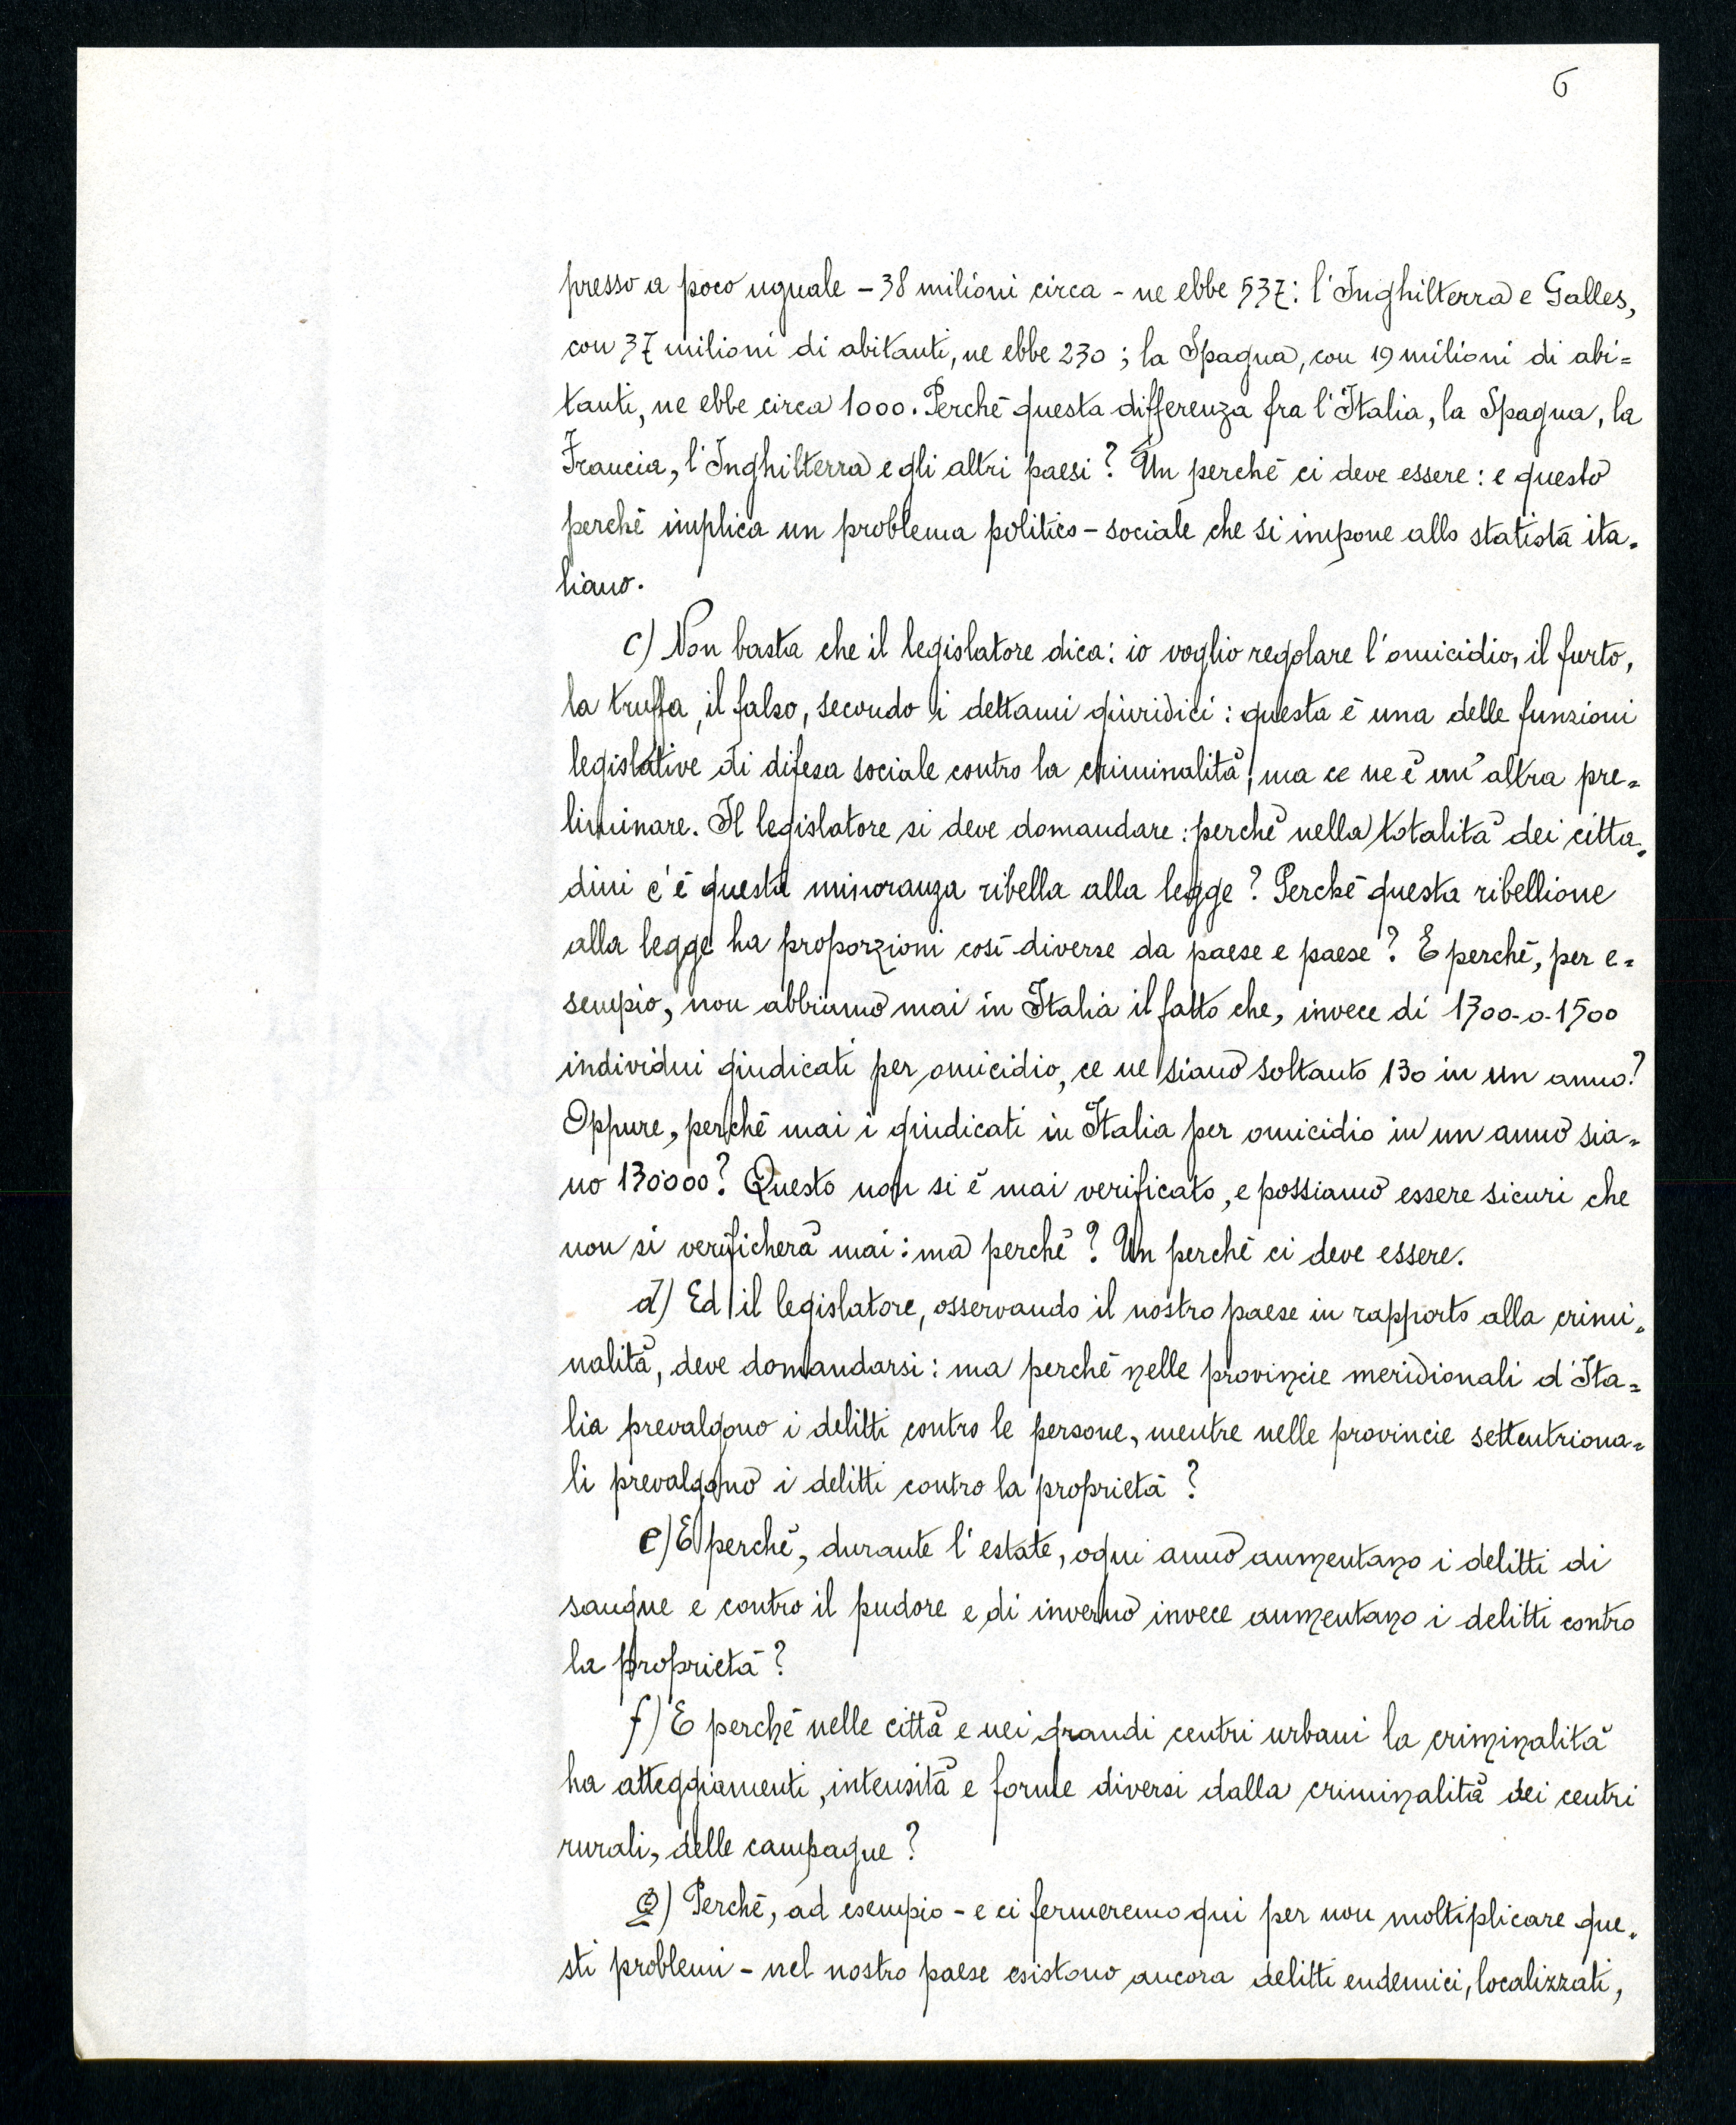 6
presso a poco uguale – 38 milioni circa – ne ebbe 537: l'Inghilterra e Galles,
con 37 milioni di abitanti, ne ebbe 230; la Spagna, con 19 milioni di abi=
tanti, ne ebbe circa 1000. Perchè questa differenza fra l'Italia, la Spagna, la
Francia, l'Inghilterra e gli altri paesi? Un perchè ci deve essere: e questo
perchè implica un problema politico – sociale che si impone allo statista ita=
liano.
c) Non basta che il legislatore dica: io voglio regolare l'omicidio, il furto,
la truffa, il falso, secondo i dettami giuridici: questa è una delle funzioni
legislative di difesa sociale contro la criminalità; ma ce ne è un'altra pre=
liminare. Il legislatore si deve domandare: perchè nella totalità dei citta=
dini c'è questa minoranza ribella alla legge? Perchè questa ribellione
alla legge ha proporzioni così diverse da paese e paese? E perchè, per e=
sempio, non abbiamo mai in Italia il fatto che, invece di 1300-o-1500
individui giudicati per omicidio, ce ne siano soltanto 130 in un anno?
Oppure, perchè mai i giudicati in Italia per omicidio in un anno sia=
no 130'000? Questo non si è mai verificato, e possiamo essere sicuri che
non si verificherà mai: ma perchè? Un perchè ci deve essere.
d) Ed il legislatore, osservando il nostro paese in rapporto alla crimi=
nalità, deve domandarsi: ma perchè nelle provincie meridionali d'Ita=
lia prevalgono i delitti contro le persone, mentre nelle provincie settentriona=
li prevalgono i delitti contro la proprietà?
e) E perchè, durante l'estate, ogni anno aumentano i delitti di
sangue e contro il pudore e di inverno invece aumentano i delitti contro
la proprietà?
f) E perchè nelle città e nei grandi centri urbani la criminalità
ha atteggiamenti, intensità e forme diversi dalla criminalità dei centri
rurali, delle campagne?
g) Perchè, ad esempio – e ci fermeremo qui per non moltiplicare que=
sti problemi – nel nostro paese esistono ancora delitti endemici, localizzati,